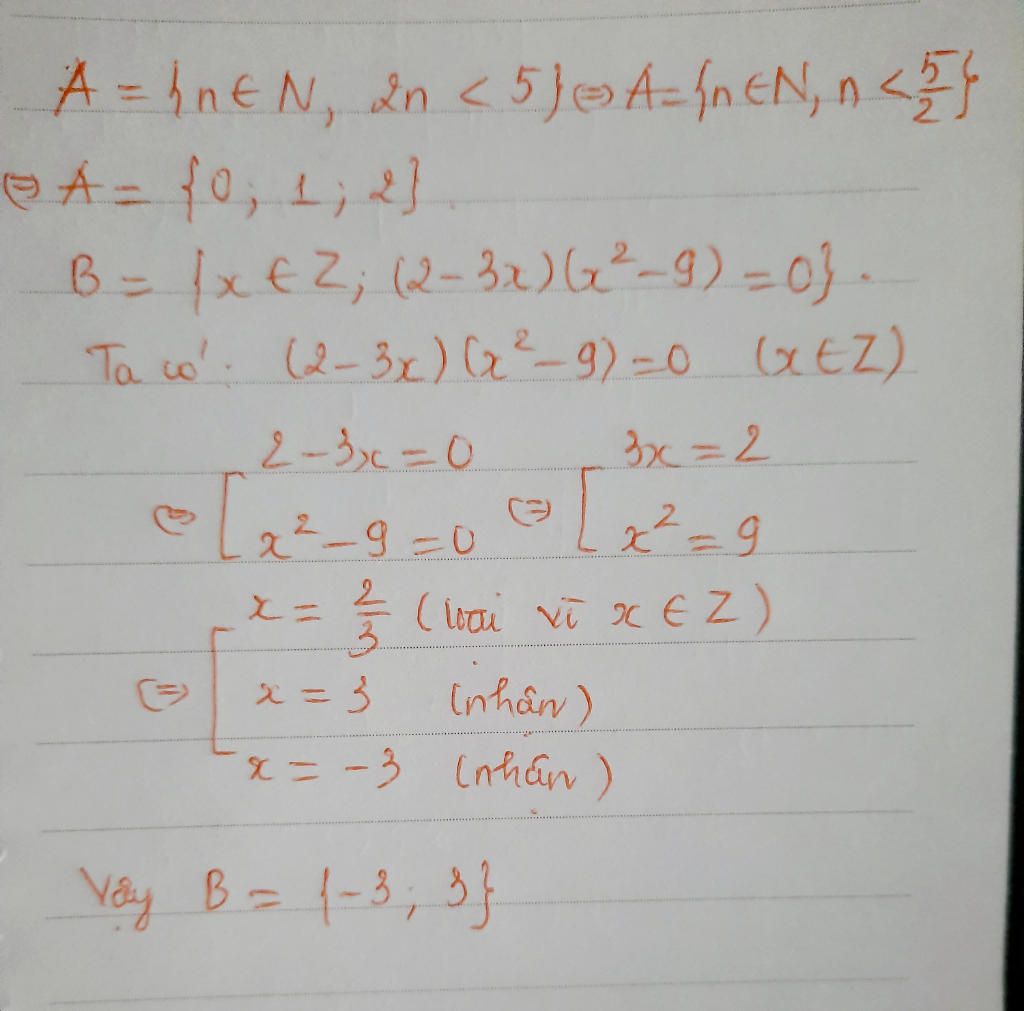 A = {n ∈ N, 2n < 5} ⇔ A = {n ∈ N, n < 5/2}
⇔ A = {0; 1; 2}.
B = {x ∈ Z; (2-3x)(x²-9) = 0}.
Ta có: (2-3x)(x²-9) = 0 (x ∈ Z)
⇔ [ 2-3x = 0 ⇔ [ 3x = 2
x²-9 = 0 x² = 9
⇔ [ x = 2/3 (loại vì x ∈ Z)
x = 3 (nhận)
x = -3 (nhận)
Vậy B = {-3; 3}